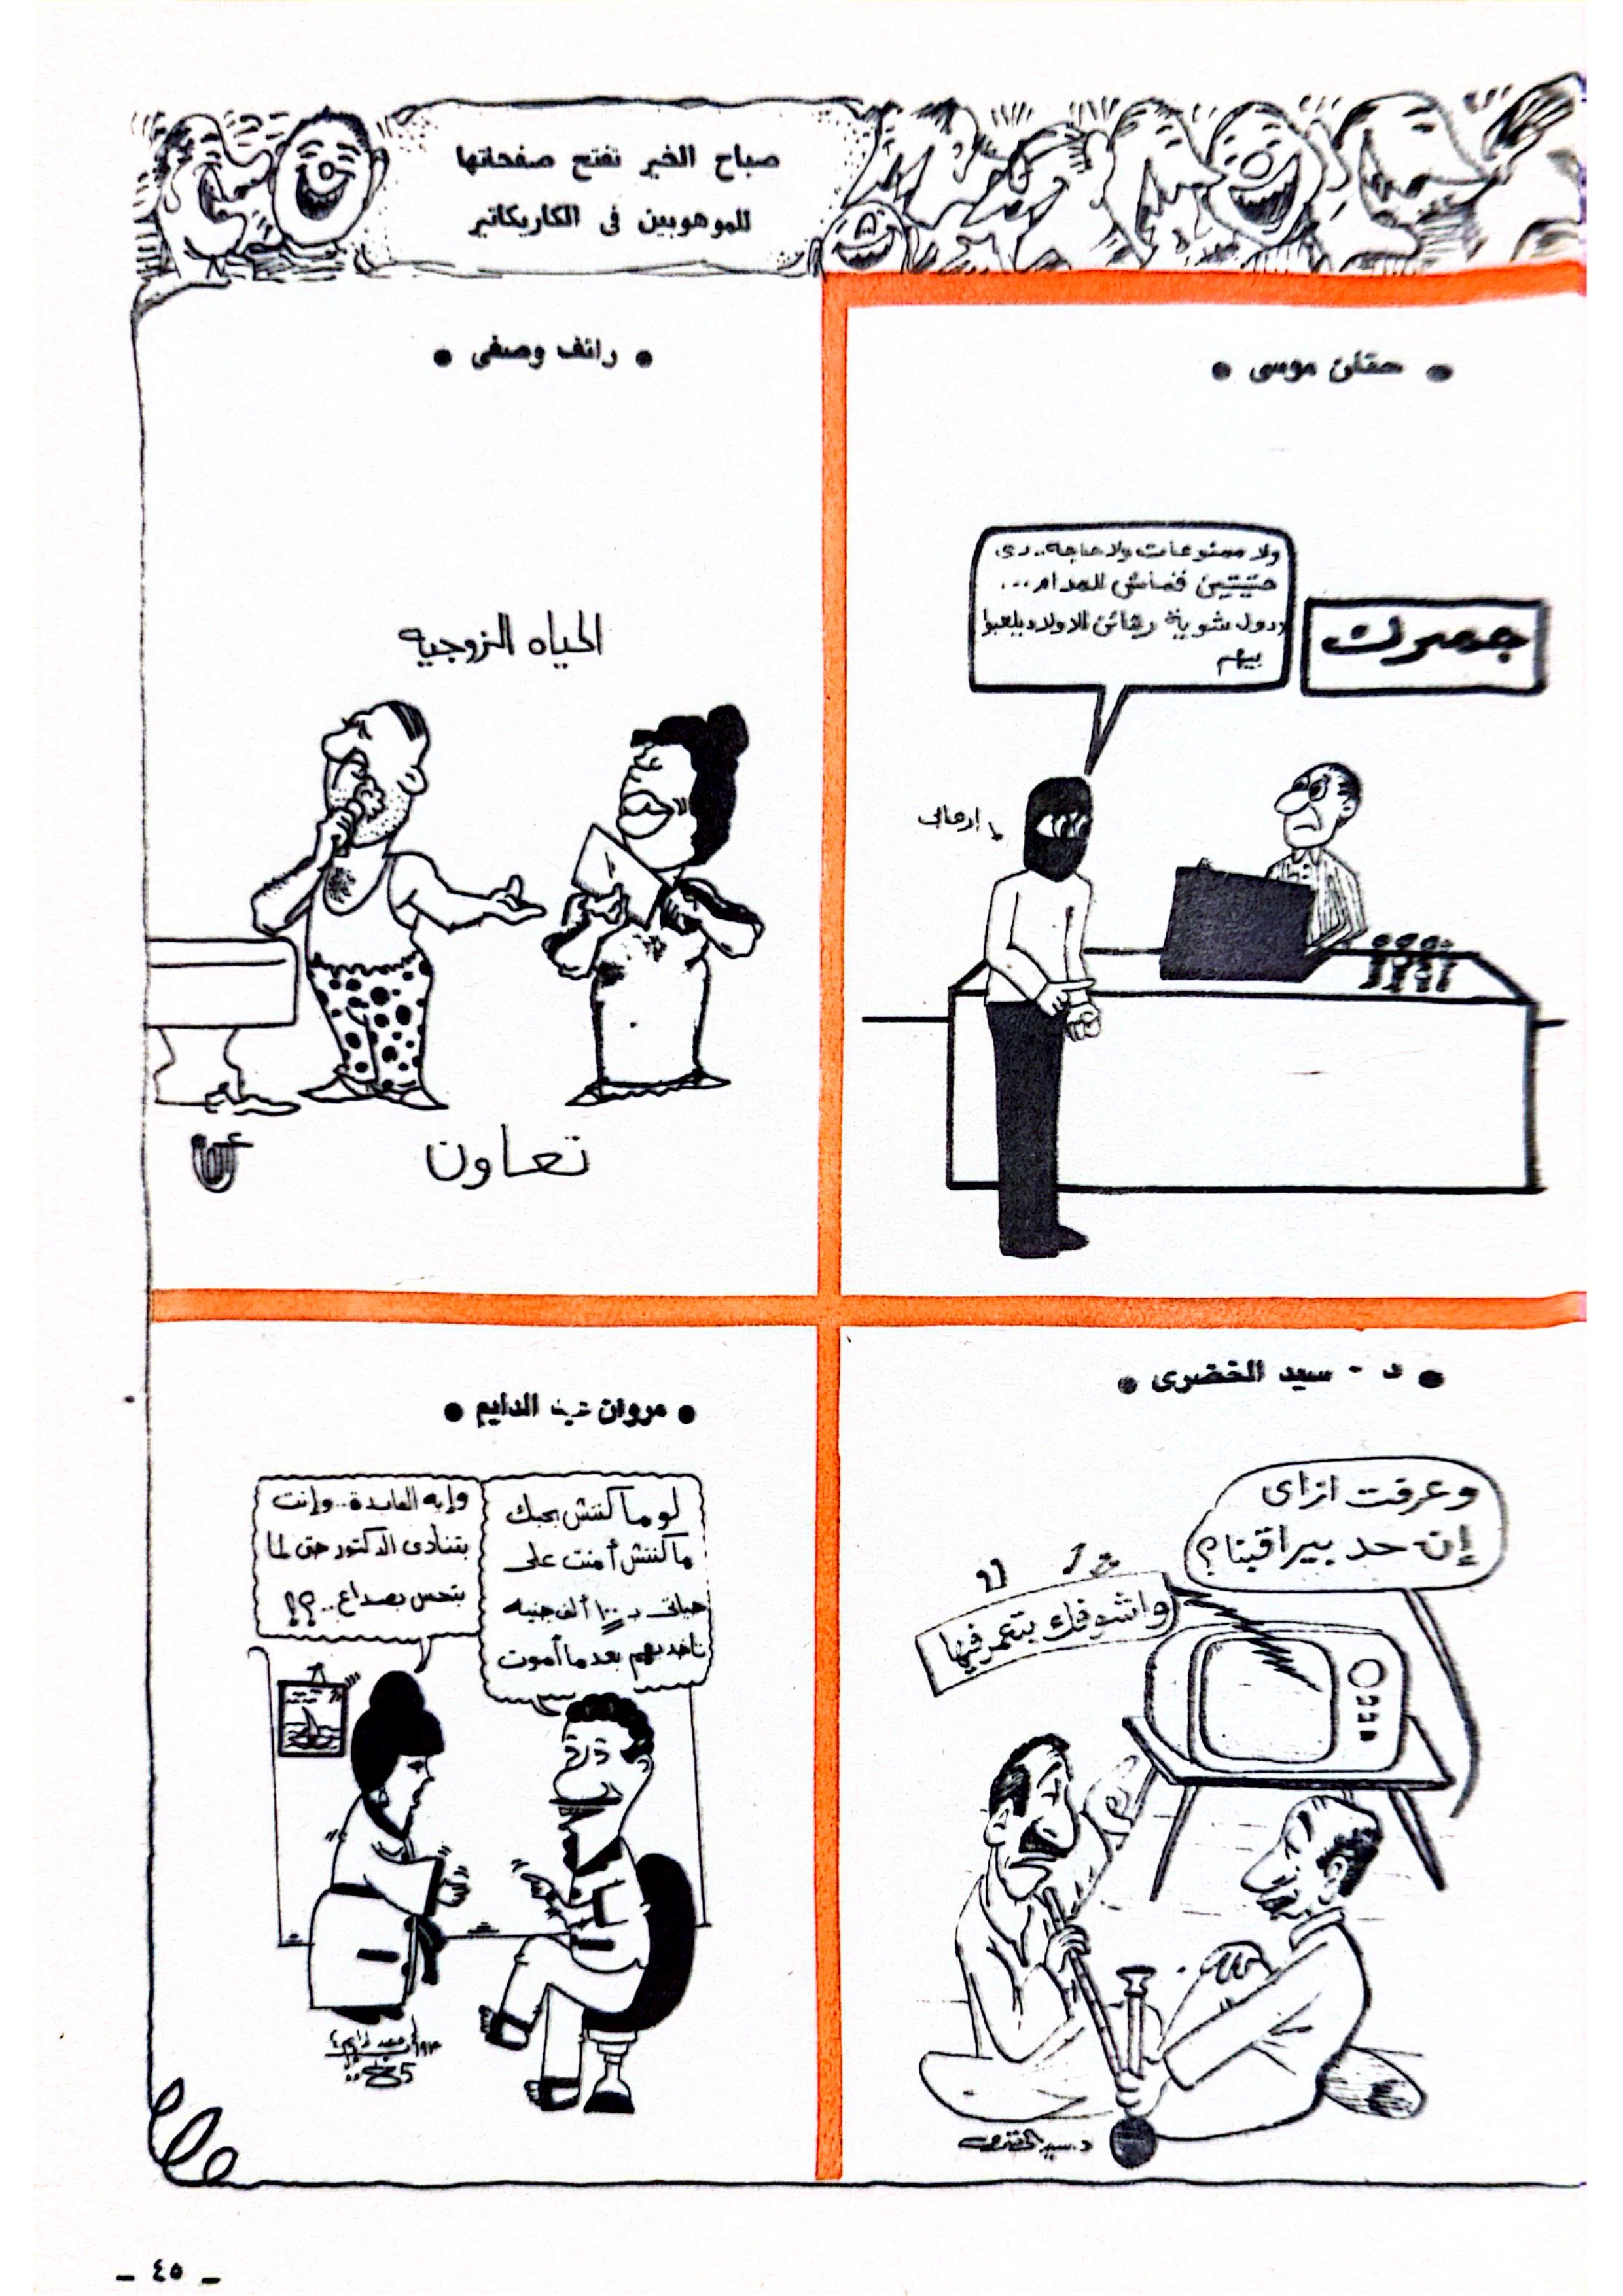 صباح الخير تفتح صفحاتها
للموهوبين فى الكاريكاتير
● حنان موسى ●
ولا ممنوعات ولا حاجه.. دى
حتيتين قماش للمدام...
ودول شوية رهائن للاولاد يلعبوا
بيهم
جمرك
إرهابى
● رائف وصفى ●
الحياه الزوجيه
تعاون
● د - سيد الخضرى ●
وعرفت ازاى
إن حد بيراقبنا؟
واشوفك بتعمر فيها
د. سيد الخضرى
● مروان عبد الدايم ●
لو ما كنتش بحبك
ما كنتش أمنت على
حياتى بـ ١٠٠ ألف جنيه
تاخديهم بعد ما أموت
وإيه الفايدة.. وإنت
بتنادى الدكتور حتى لما
بتحس بصداع..؟!
85
ــ ٤٥ ــ